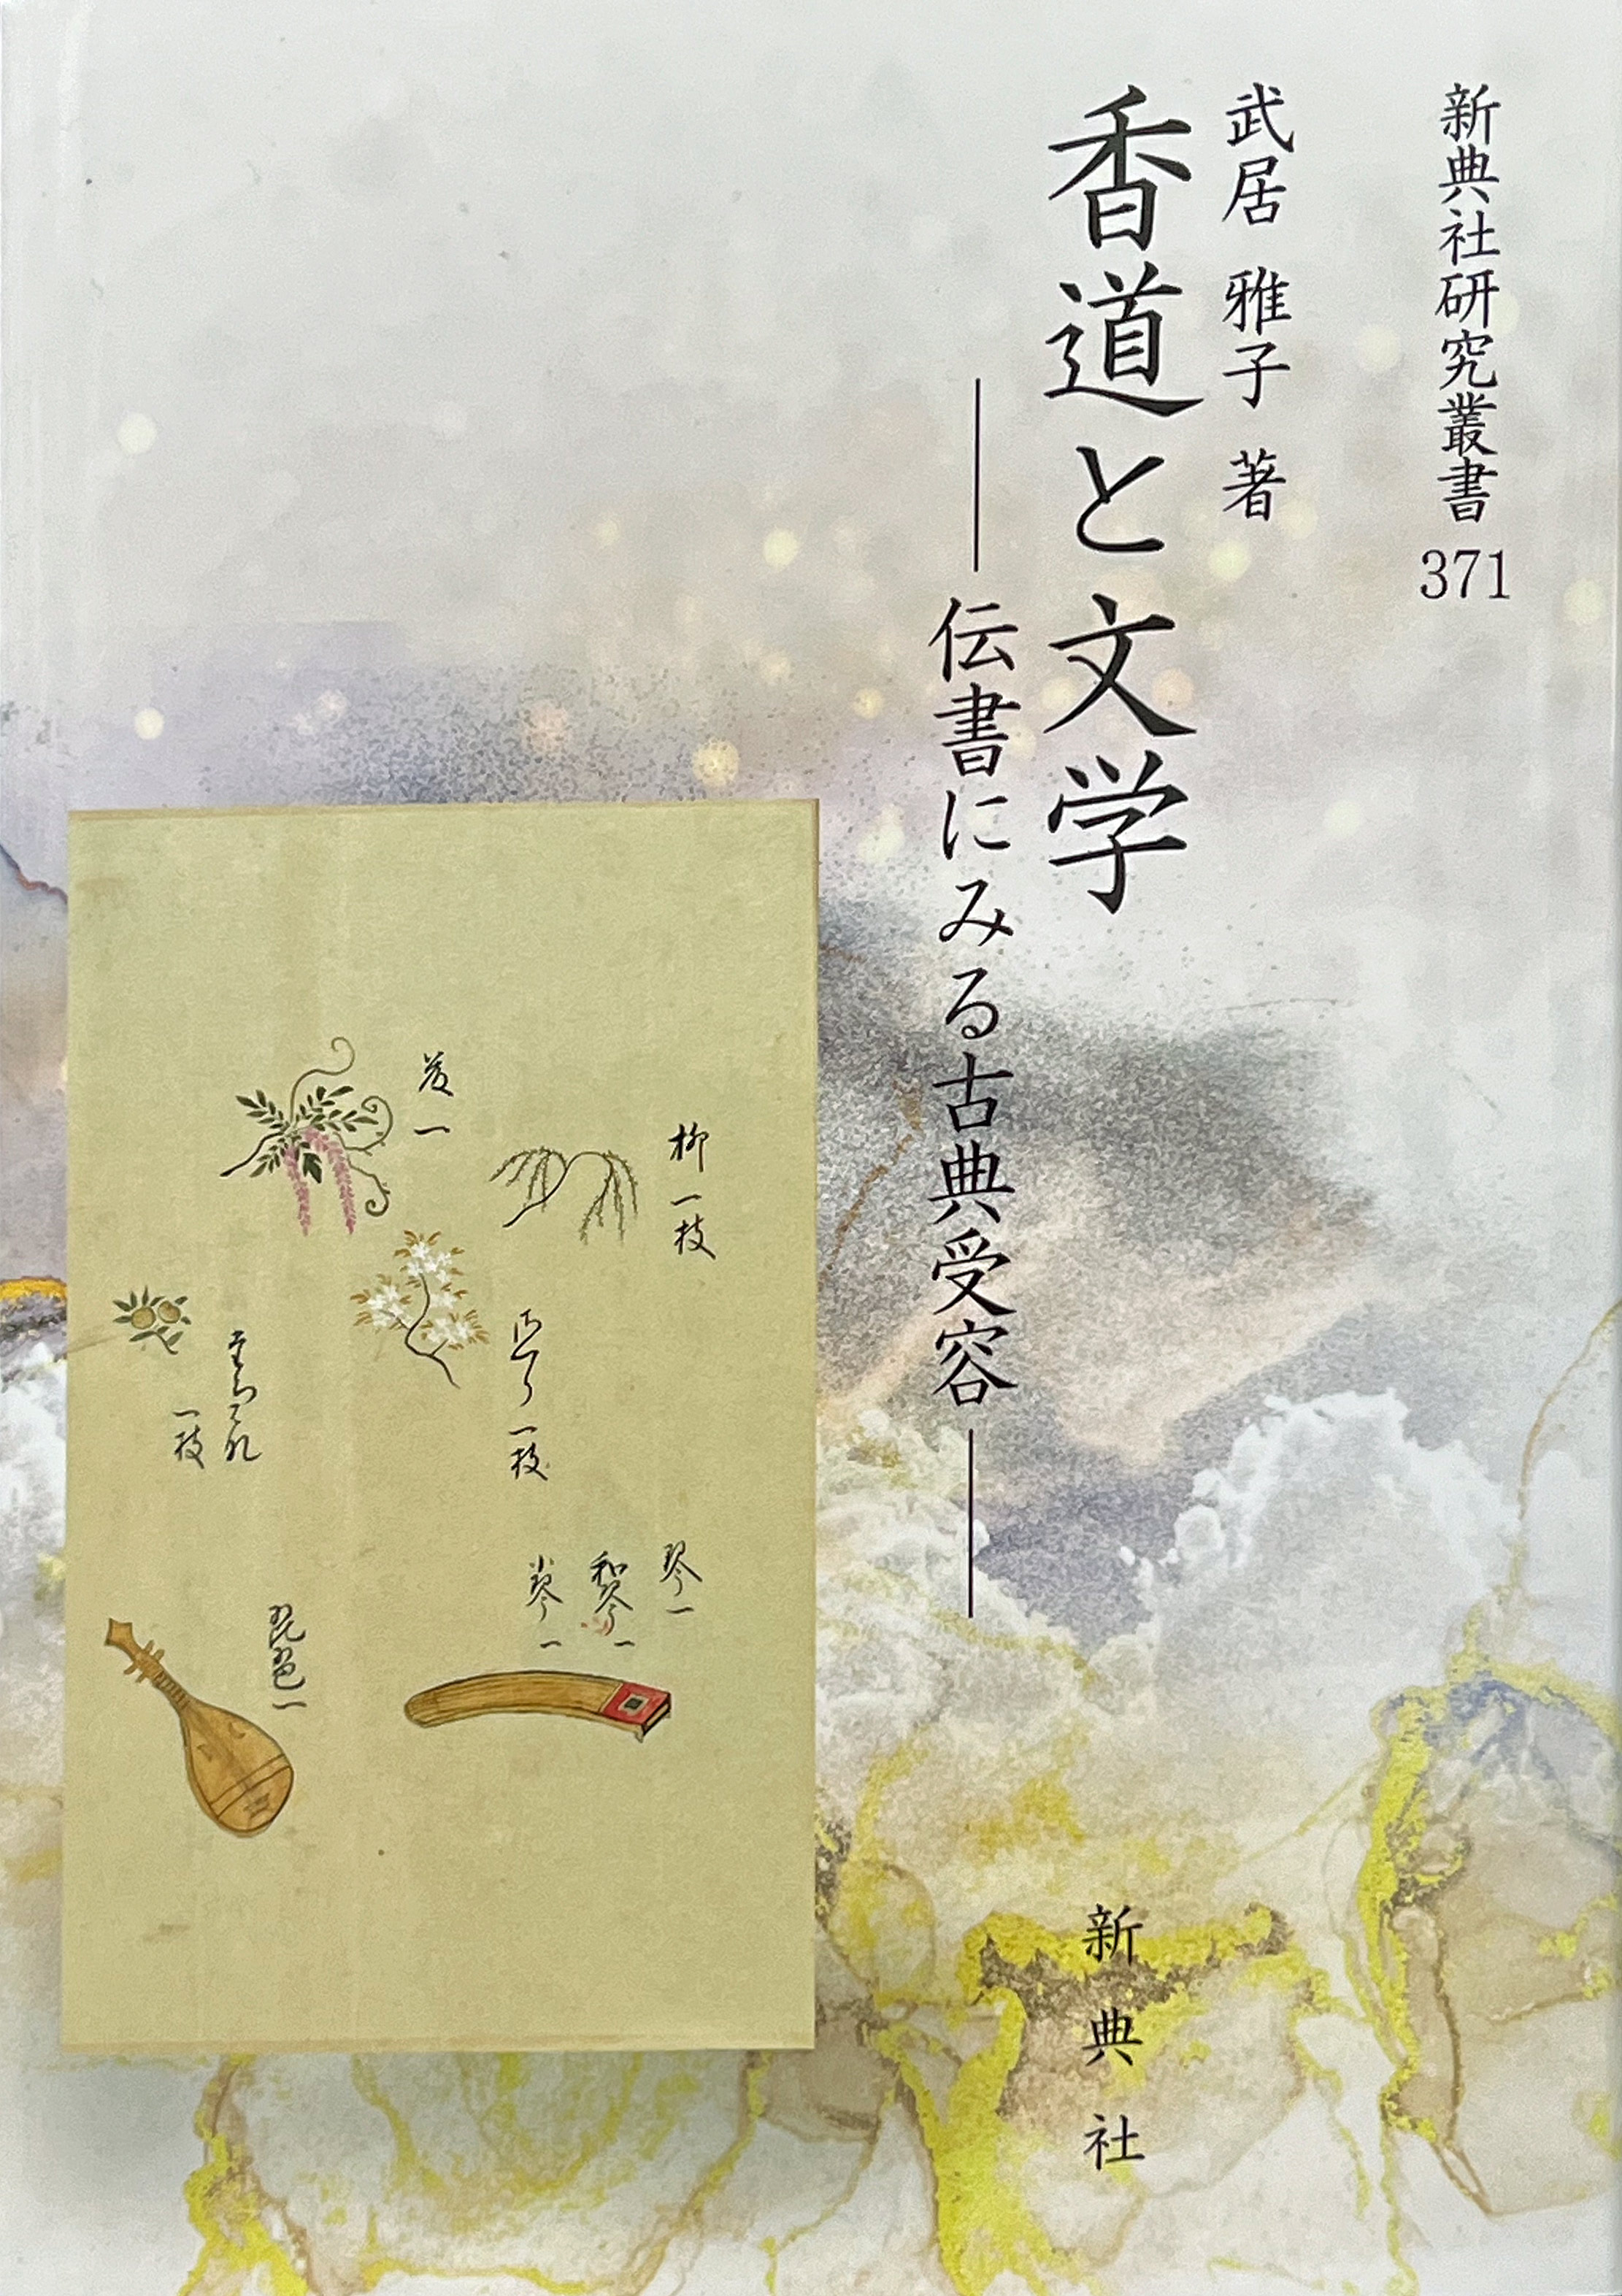 新典社研究叢書 371
武居 雅子 著
香道と文学
――伝書にみる古典受容――
新典社
柳一枝
藤一
さくら一枝
たちはな
一枝
琴一
和琴一
琵琶一